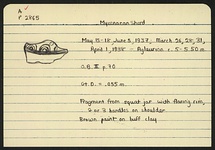 A
P 2865
Mycenaean Sherd
May 15-18 June 3, 1937; March 26, 28, 31,
April 1, 1938 - Aglaurion r. 5-5.50 m.
O.B. III p. 70
Gr. D. = .055 m.
Fragment from squat jar with flaring rim,
2 or 3 handles on shoulder
Brown paint on buff clay